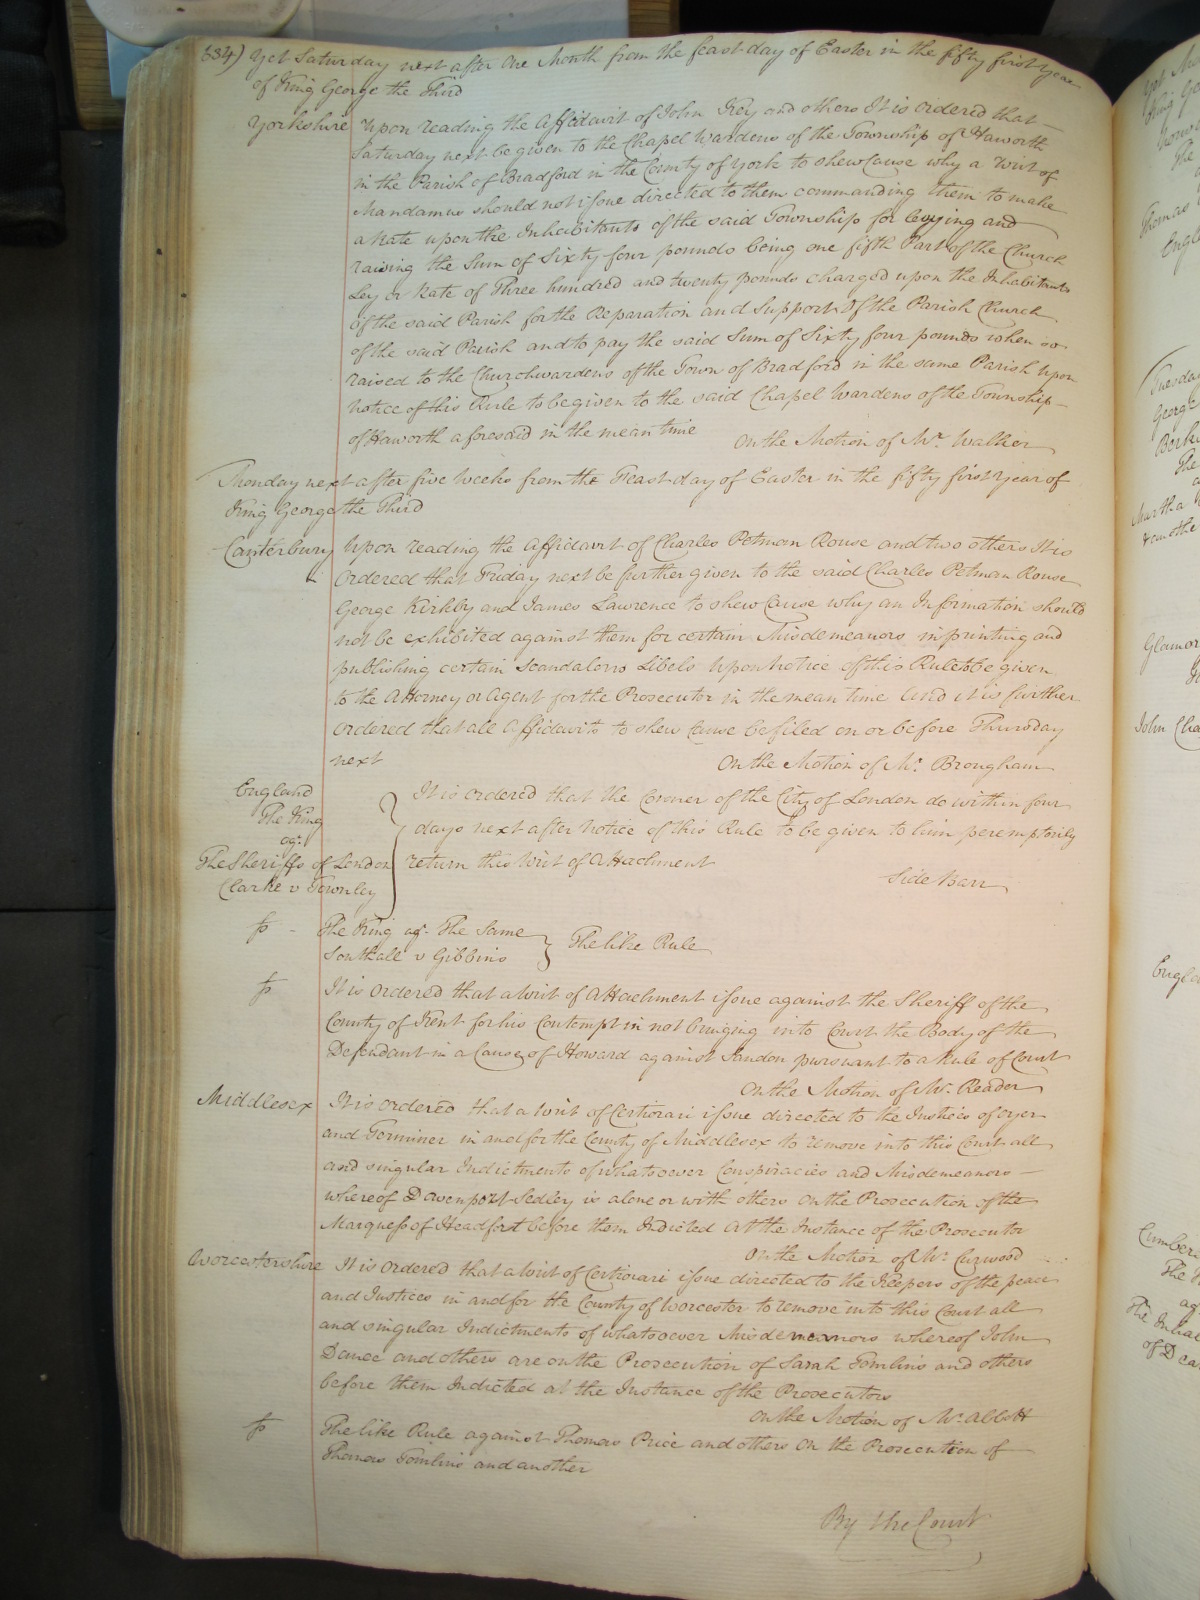 634) Yet Saturday next after one Month from the feast day of Easter in the fifty first Year
of King George the Third
Yorkshire Upon reading the Affidavit of John Key and others It is ordered that
Saturday next be given to the Chapel Wardens of the Township of Haworth
in the Parish of Bradford in the County of York to shew Cause why a Writ of
Mandamus should not issue directed to them commanding them to make
a Rate upon the Inhabitants of the said Township for levying and
raising the Sum of Sixty four pounds being one fifth Part of the Church
Ley or Rate of Three hundred and twenty pounds charged upon the Inhabitants
of the said Parish for the Reparation and Support of the Parish Church
of the said Parish and to pay the said Sum of Sixty four pounds when so
raised to the Churchwardens of the Town of Bradford in the same Parish Upon
Notice of this Rule to be given to the said Chapel Wardens of the Township
of Haworth aforesaid in the mean time
On the Motion of Mr. Walker
Monday next after five Weeks from the Feast day of Easter in the fifty first Year of
King George the Third
Canterbury Upon reading the Affidavit of Charles Petman Rouse and two others It is
Ordered that Friday next be further given to the said Charles Petman Rouse
George Kirkby and James Lawrence to shew Cause why an Information should
not be exhibited against them for certain Misdemeanors in printing and
publishing certain scandalous Libels Upon Notice of this Rule to be given
to the Attorney or Agent for the Prosecutor in the mean time And it is further
ordered that all Affidavits to shew Cause be filed on or before Thursday
next
On the Motion of Mr. Brougham
England
The King
agt.
The Sheriffs of London
Clarke v Townley
It is ordered that the Coroner of the City of London do within four
days next after Notice of this Rule to be given to him peremptorily
return this Writ of Attachment
Side Barr
The King agt. The Same
Southall v Gibbins
The like Rule
It is ordered that a Writ of Attachment issue against the Sheriff of the
County of Kent for his Contempt in not bringing into Court the Body of the
Defendant in a Cause of Howard against Sandon pursuant to a Rule of Court
On the Motion of Mr. Reader
Middlesex It is ordered that a Writ of Certiorari issue directed to the Justices of Oyer
and Terminer in and for the County of Middlesex to remove into this Court all
and singular Indictments of whatsoever Conspiracies and Misdemeanors
whereof Davenport Sedley is alone or with others on the Prosecution of the
Marquess of Headfort before them Indicted At the Instance of the Prosecutor
On the Motion of Mr. Curwood
Worcestershire It is ordered that a Writ of Certiorari issue directed to the Keepers of the peace
and Justices in and for the County of Worcester to remove into this Court all
and singular Indictments of whatsoever Misdemeanors whereof John
Dance and others are on the Prosecution of Sarah Tomlins and others
before them Indicted at the Instance of the Prosecutors
On the Motion of Mr. Abbott
The like Rule against Thomas Price and others on the Prosecution of
Thomas Tomlins and another
By the Court
Thomas
Tuesday
George
Berk
The
Martha
Glamor
John
Engla
Cumber
The
ag
The Inha
of Dea